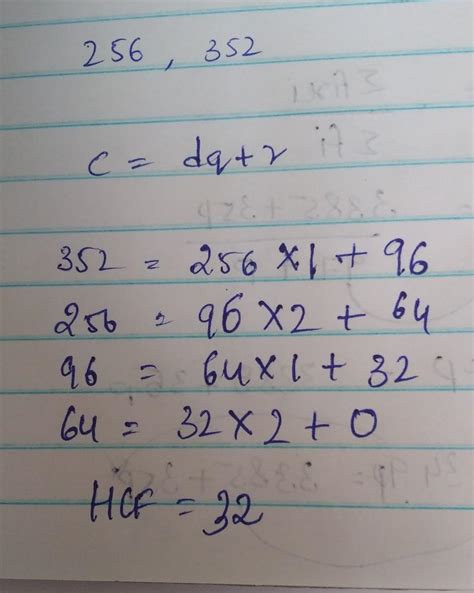 256 , 352
c = dq+r
352 = 256 × 1 + 96
256 = 96 × 2 + 64
96 = 64 × 1 + 32
64 = 32 × 2 + 0
HCF = 32